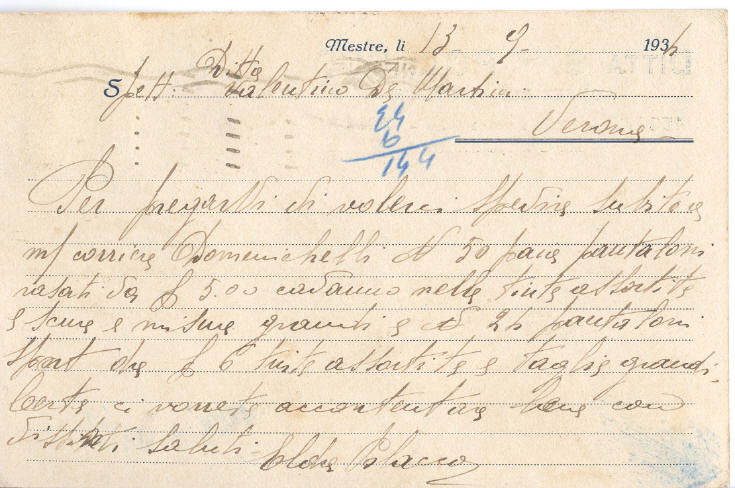 Mestre, li 13 - 9 - 1934
Spett. Ditta
Valentino De Martin
Verona
24
6
144
Per pregarvi di volerci spedire subito a
m/ corriere Domenichelli N 50 paia pantaloni
rasati da £ 5.00 cadauno nelle tinte assortite
e scure e misure grandi e N 24 pantaloni
sport da £ 6 tinte assortite e taglie grandi.
Certa ci vorrete accontentare bene con
distinti saluti